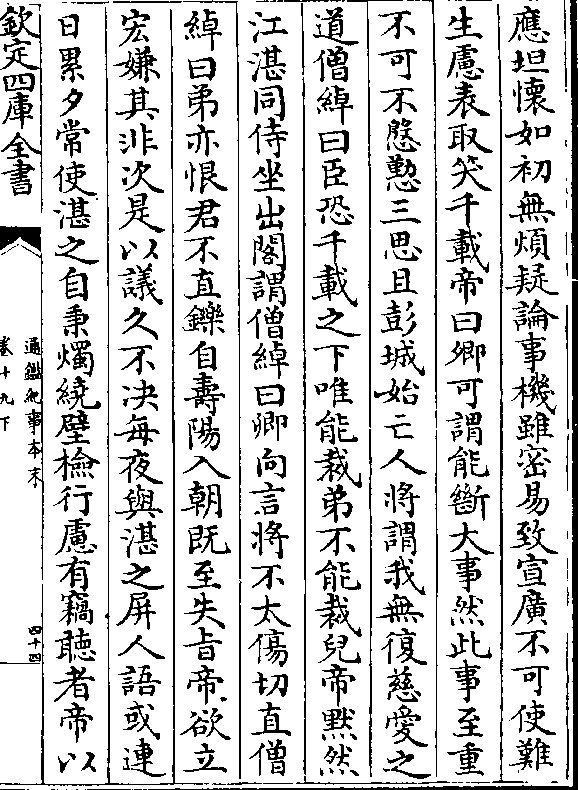 應坦懷如初無煩疑論事機雖密易致宣廣不可使難
生慮表取笑千載帝曰卿可謂能斷大事然此事至重
不可不慇懃三思且彭城始亡人將謂我無復慈愛之
道僧綽曰臣恐千載之下唯能裁弟不能裁兒帝默然
江湛同侍坐出閣謂僧綽曰卿向言將不太傷切直僧
綽曰弟亦恨君不直鑠自壽陽入朝既至失旨帝欲立
宏嫌其非次是以議久不决每夜與湛之屏人語或連
日累夕常使湛之自秉燭繞壁檢行慮有竊聽者帝以
欽定四庫全書
通鑑紀事本末
卷十九下
四十四